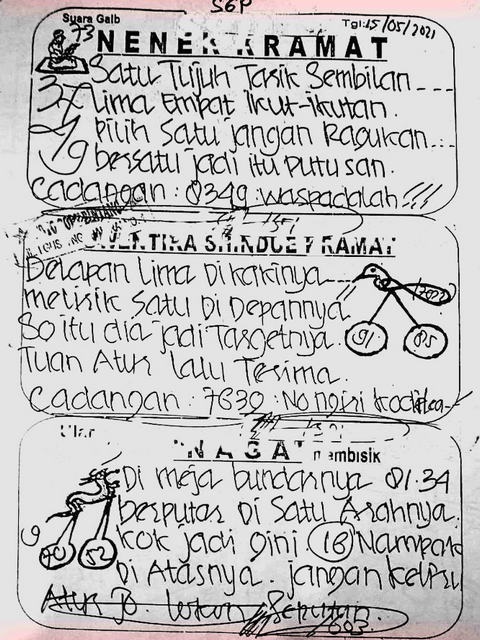 SGP
Suara Gaib
Tgl: 15/05/2021
73
NENEK KRAMAT
Satu Tujuh Tasik Sembilan ---
Lima Empat ikut-ikutan.
Pilih Satu jangan Ragukan...
bersatu jadi itu putusan.
Cadangan : 8349 : waspadalah!!!
KRAMAT
Delapan Lima Di kakinya ---
melirik Satu Di Depannya
So itu dia jadi Targetnya.
91 85
Tuan Atur lalu Terima.
Cadangan : 7639 : No ngiri
NAGA membisik
Di meja bundarnya 81.34
berputar Di Satu Arahnya.
kok jadi gini (18) Nampak
52
Di Atasnya. jangan keliru
Atur Jo.